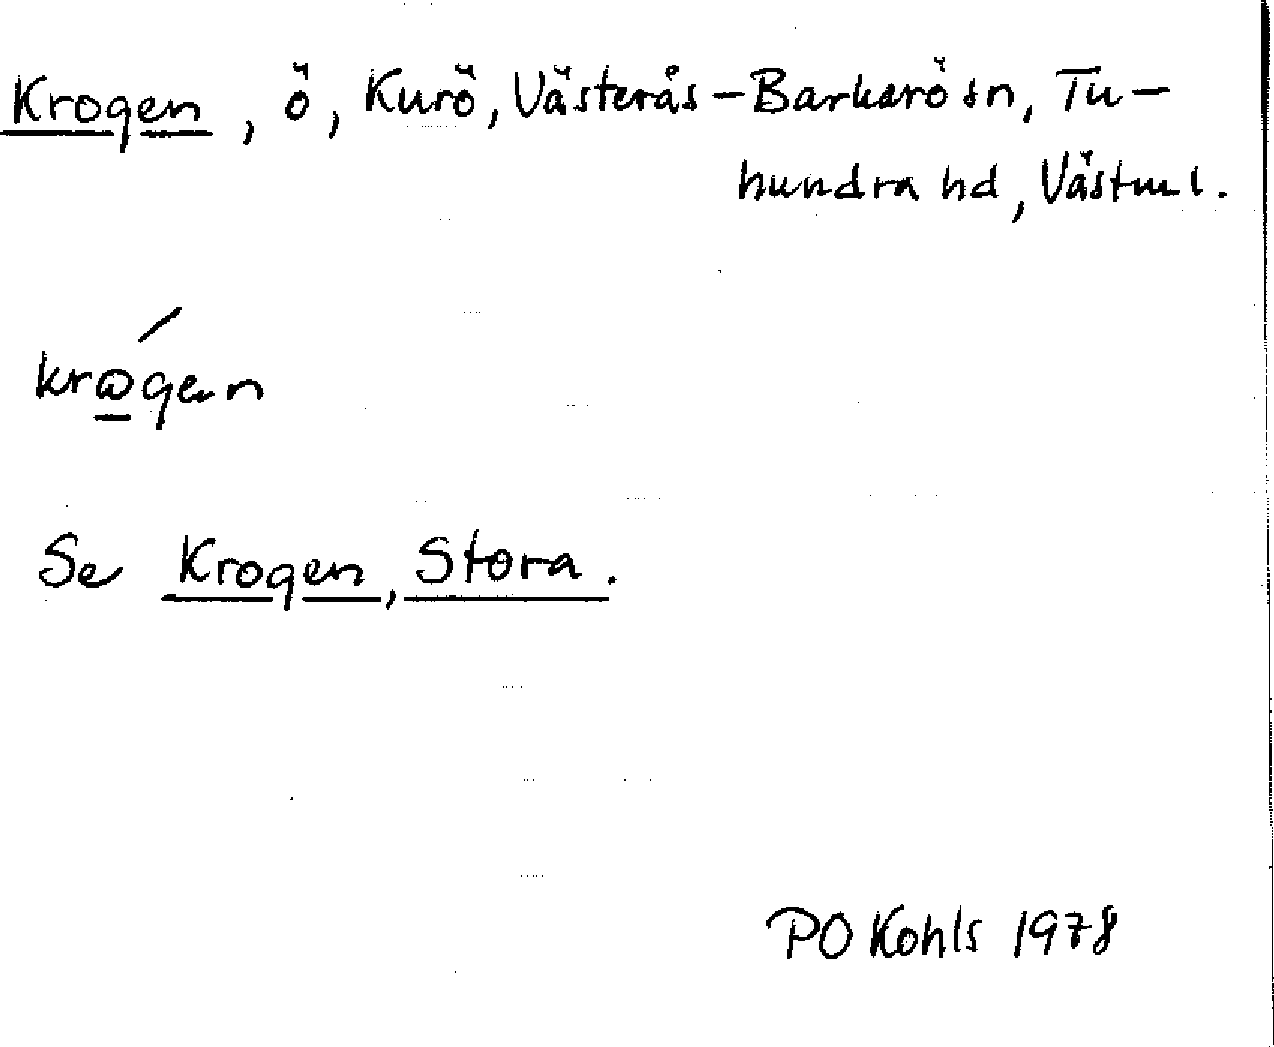 Krogen, ö, Kurö, Västerås-Barkarö sn, Tu-
hundra hd, Västml.
krogen
Se Krogen, Stora.
PO Kohls 1978